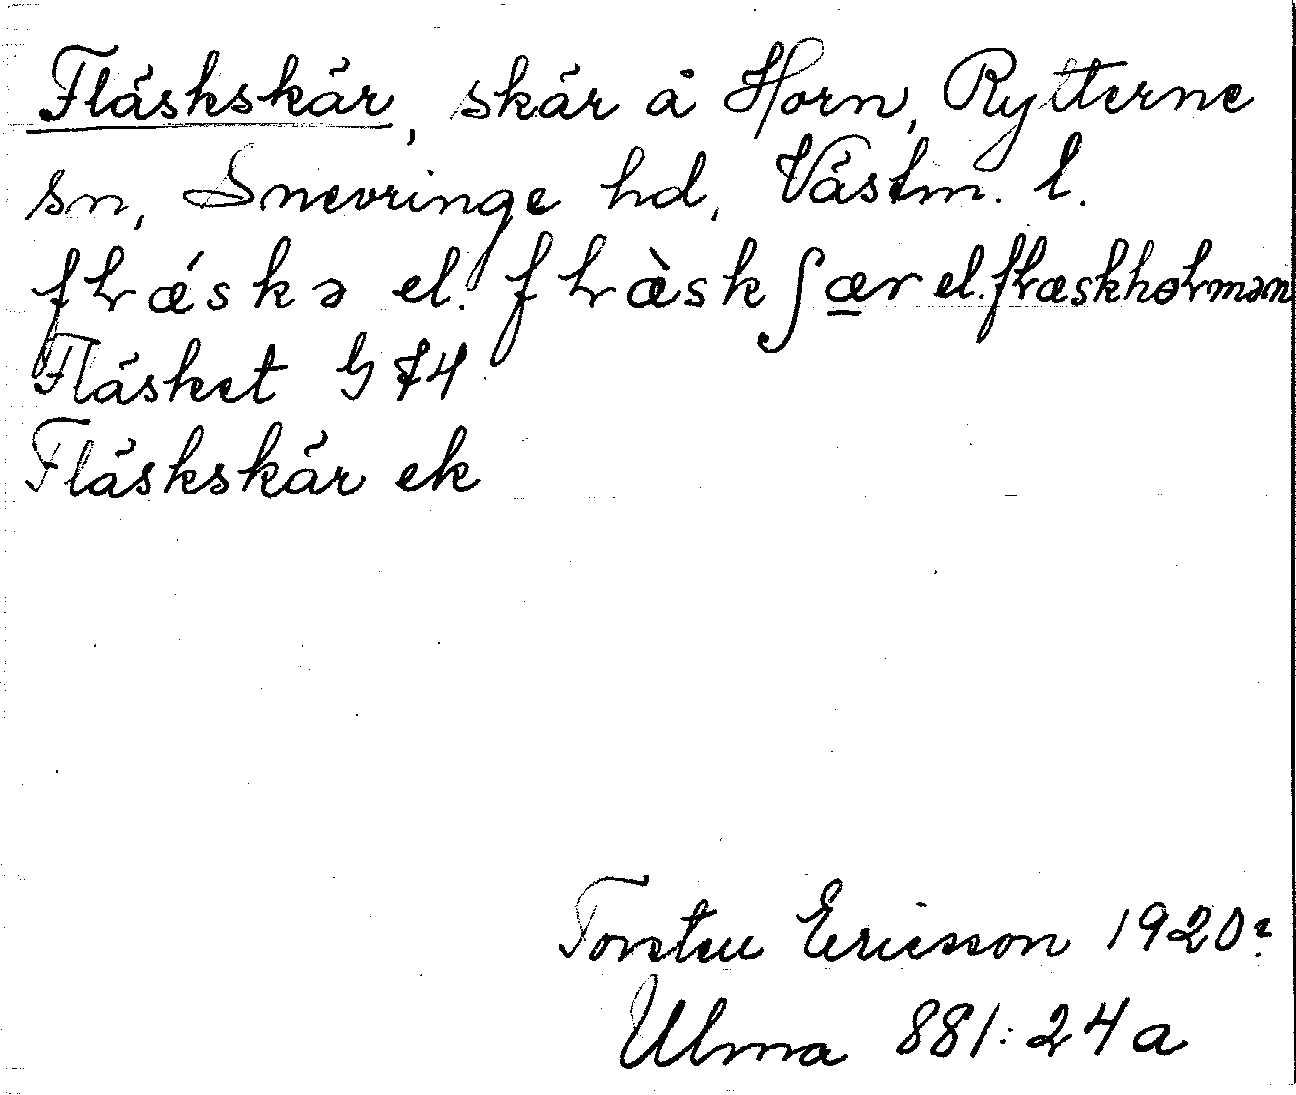 Fläskskär, skär å Horn, Rytterne
sn, Snevringe hd, Västm. l.
fɫǽskə el. fɫæ̀skʃær el. fɫæskhɵɫmən
Fläsket G 74
Fläskskär ek
Torsten Ericsson 1920?
Ulma 881:24a